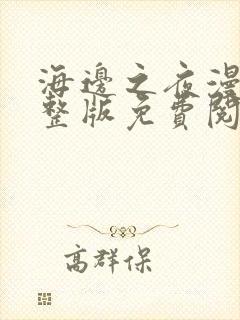 海邊之夜漫
整版免費閱
高群保